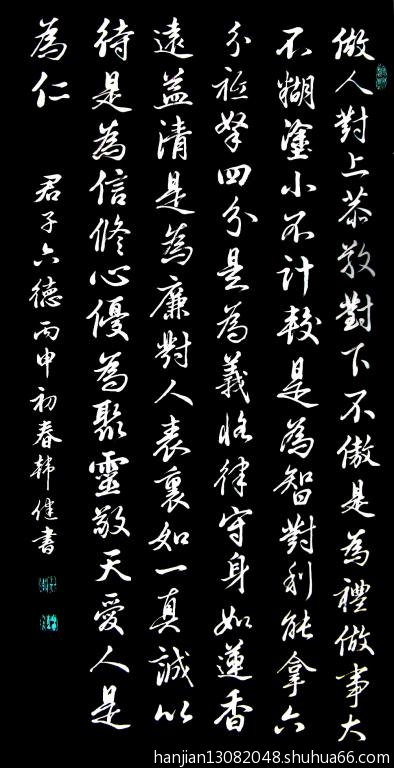 做人對上恭敬對下不傲是為禮做事大
不糊塗小不計較是為智對利能拿六
分祗拏四分是為義恪律守身如蓮香
遠益清是為廉對人表裏如一真誠以
待是為信修心優為聚靈敬天愛人是
為仁
君子六德丙申初春韓健書
hanjian13082048.shuhua66.com